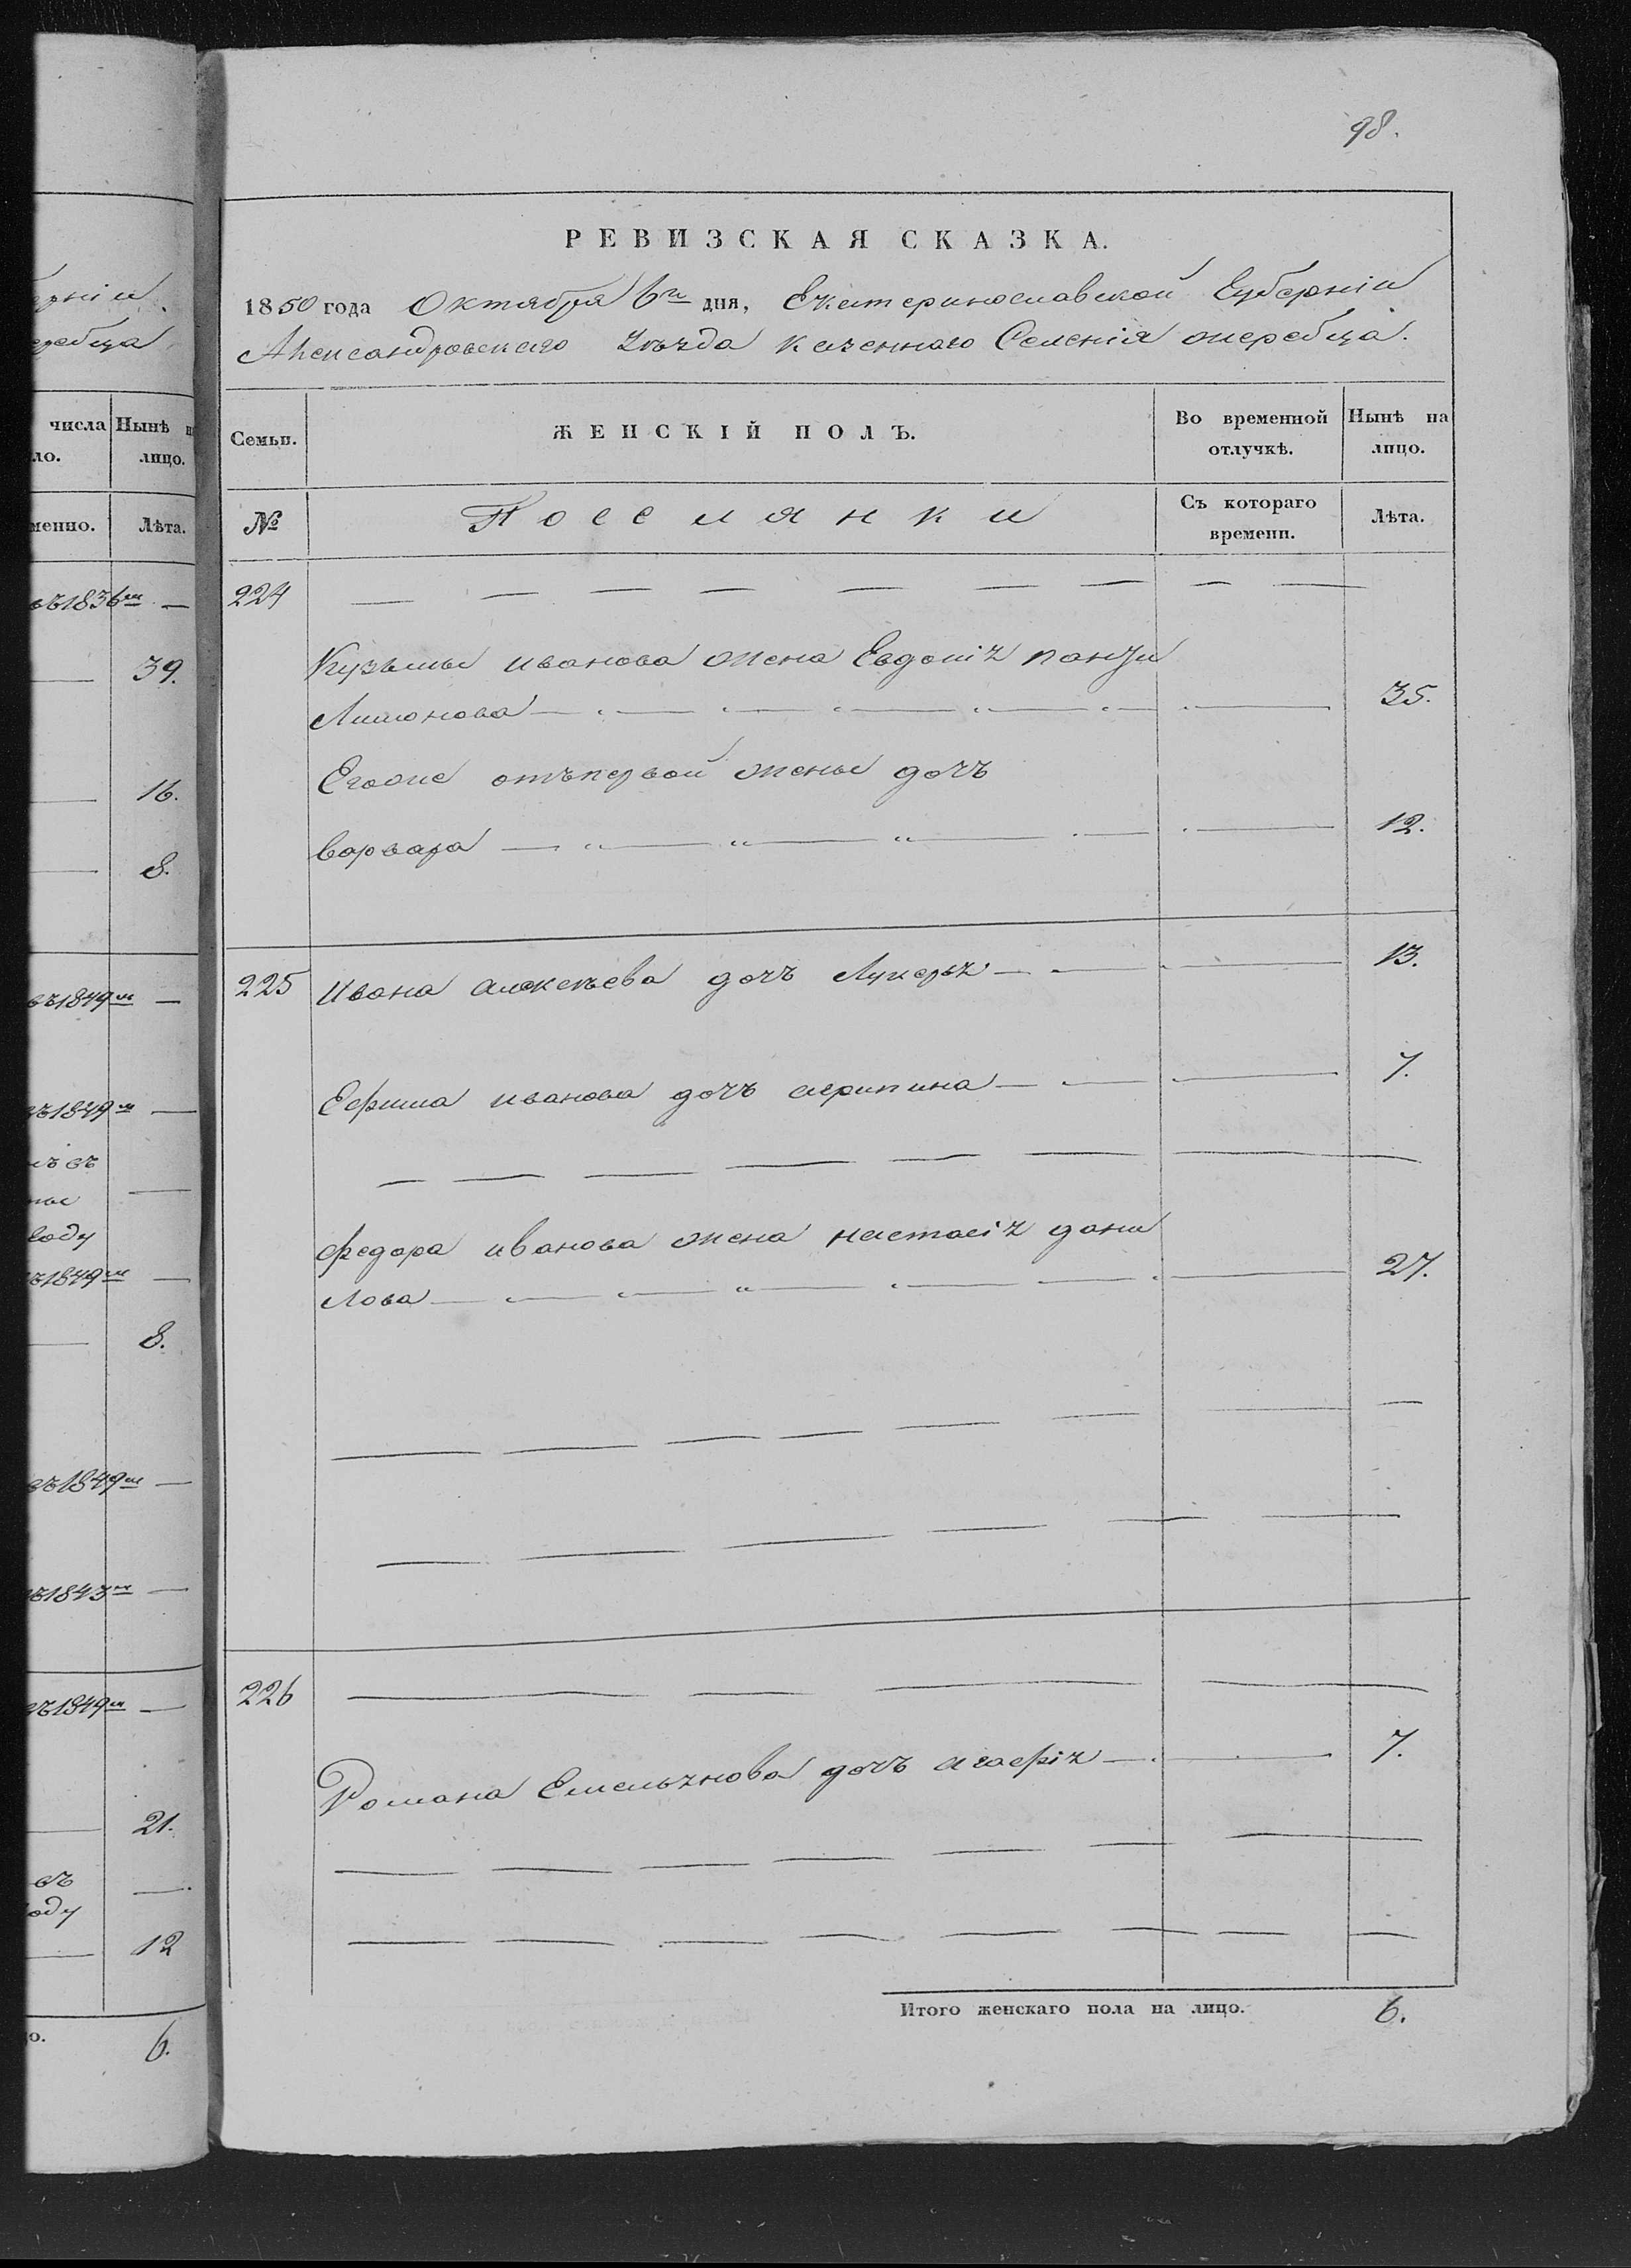 98.
РЕВИЗСКАЯ СКАЗКА.
1850 года Октября 6го дня, Екатеринославской Губерніи
Александровского Уезда казенного Селенія жеребца.
Семьи.
ЖЕНСКІЙ ПОЛЪ.
Во временной отлучкѣ.
Нынѣ на лицо.
№
Поселянки
Съ котораго времени.
Лѣта.
224
Кузьмы иванова жена Евдокія панту
Лимонова 35.
Егоже отъпервой жены дочь
варвара 12.
225 ивана алексѣева дочъ Лукерья 13.
Ефима иванова дочъ акрипина 7.
федора иванова жена настасія дани
лова 27.
226
Романа Емельянова дочъ агафія 7.
Итого женскаго пола на лицо. 6.
числа Нынѣ
ло. лицо.
менно. Лѣта.
въ1836м
39.
16.
8.
въ1849м
въ1849м
въ
году
въ1849м
8.
въ1849м
въ1843м
въ1849м
21.
въ
оду
12
о. 6.